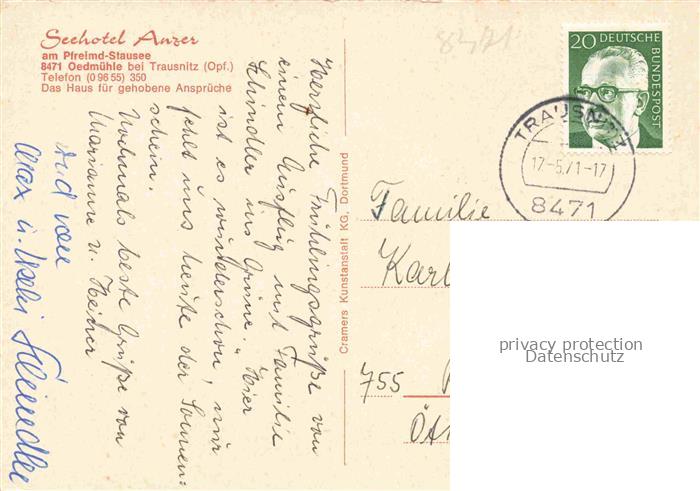 Seehotel Anzer
am Pfreimd-Stausee
8471 Oedmühle bei Trausnitz (Opf.)
Telefon (0 96 55) 350
Das Haus für gehobene Ansprüche
Herzliche Frühlingsgrüße von
einem Ausflug mit Familie
Schindler ins Grüne." Hier
ist es wunderschön, nur
fehlt uns heute der Sonnen-
schein.
Nochmals beste Grüße von
Marianne u. Heiner
Und von
Max u.
Cramers Kunstanstalt KG. Dortmund
8471
20 DEUTSCHE
BUNDESPOST
TRAUSNITZ
17-5.71-17
8471
Familie
Karl
755
privacy protection
Datenschutz